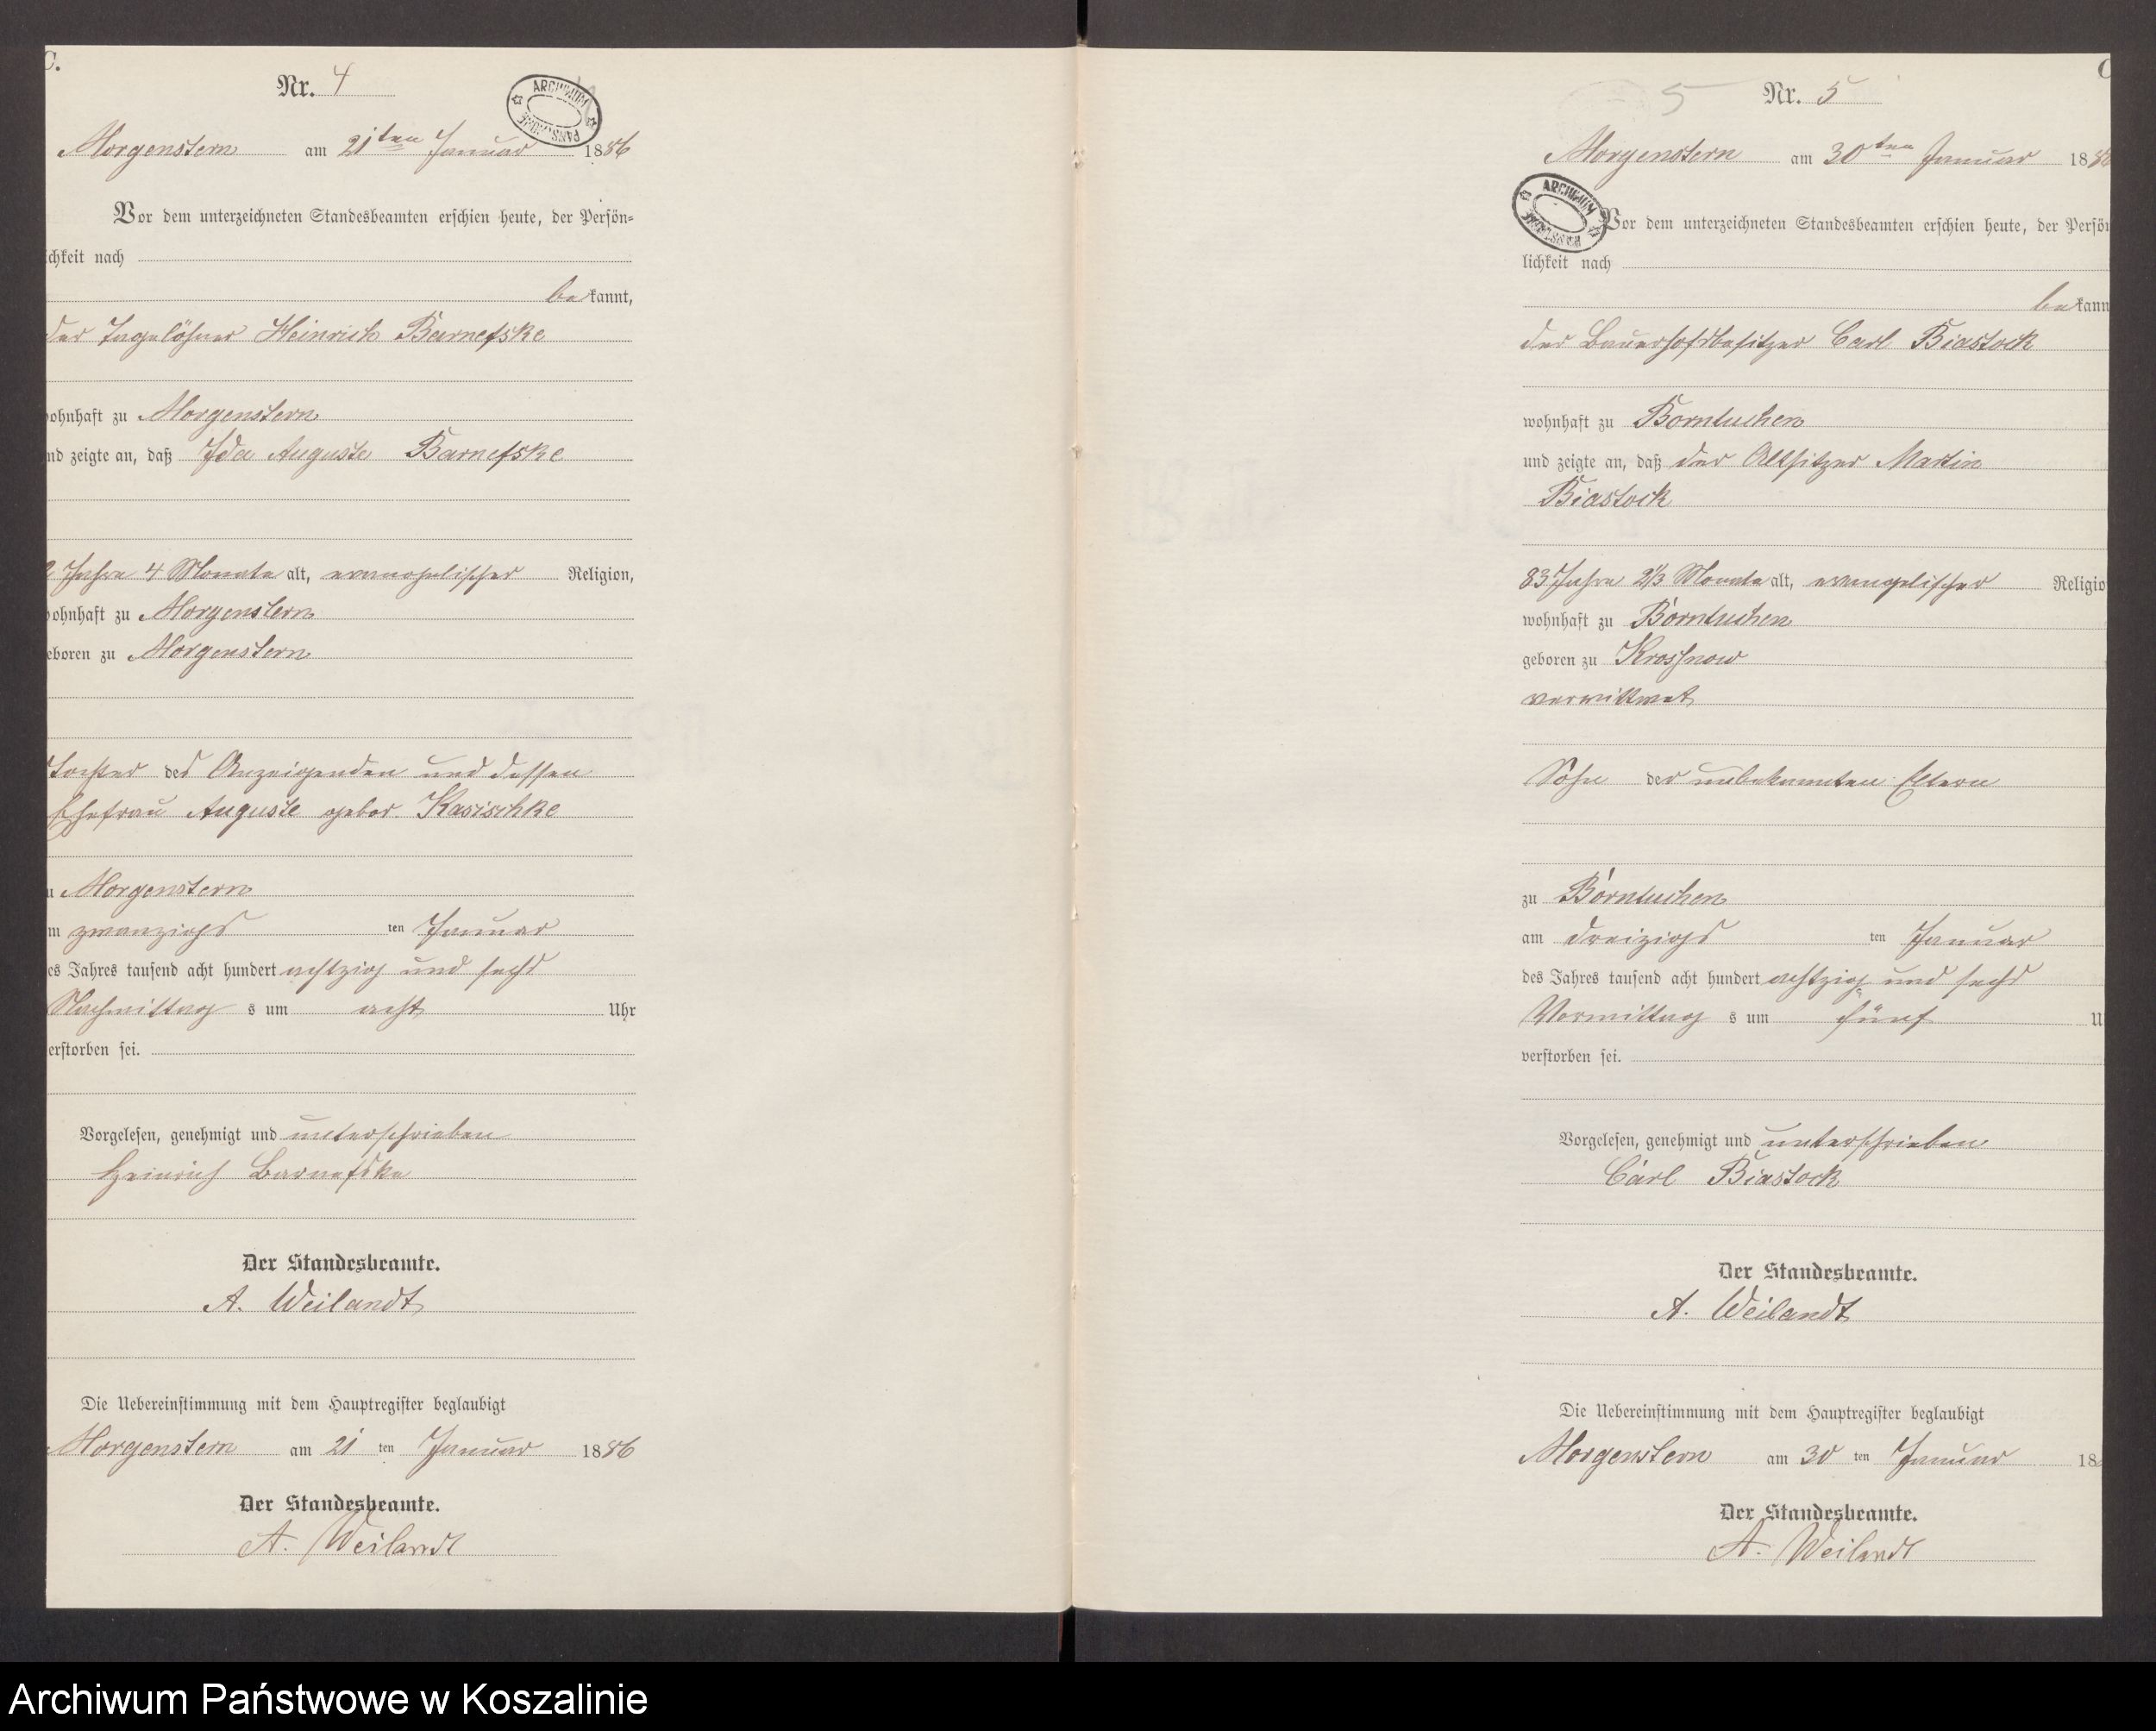 C.
Nr. 4
ARCHIWUM PAŃSTWOWE
Morgenstern am 21ten Januar 1886
Vor dem unterzeichneten Standesbeamten erschien heute, der Persön-
ichkeit nach
be kannt,
der Tagelöhner Heinrich Barnefske
ohnhaft zu Morgenstern
nd zeigte an, daß Ida Auguste Barnefske
2 Jahre 4 Monate alt, evangelischer Religion,
ohnhaft zu Morgenstern
eboren zu Morgenstern
Tochter des Anzeigenden und dessen
Ehefrau Auguste gebor. Kasischke
u Morgenstern
m zwanzigs ten Januar
es Jahres tausend acht hundert achtzig und sechs
Nachmittag s um acht Uhr
erstorben sei.
Vorgelesen, genehmigt und unterschrieben
Heinrich Barnefske
Der Standesbeamte.
A. Weilandt
Die Uebereinstimmung mit dem Hauptregister beglaubigt
Morgenstern am 21 ten Januar 1886
Der Standesbeamte.
A. Weilandt
C
5
Nr. 5
Morgenstern am 30ten Januar 188
ARCHIWUM PAŃSTWOWE
Vor dem unterzeichneten Standesbeamten erschien heute, der Persön
lichkeit nach
be kann
der Bauerhofsbesitzer Carl Biastock
wohnhaft zu Borntuchen
und zeigte an, daß der Altsitzer Martin
Biastock
83 Jahre 2 1/3 Monate alt, evangelischer Religio
wohnhaft zu Borntuchen
geboren zu Krossnow
verwittwet
Sohn der unbekannten Eltern
zu Borntuchen
am dreizigs ten Januar
des Jahres tausend acht hundert achtzig und sechs
Vormittag s um fünf U
verstorben sei.
Vorgelesen, genehmigt und unterschrieben
Carl Biastock
Der Standesbeamte.
A. Weilandt
Die Uebereinstimmung mit dem Hauptregister beglaubigt
Morgenstern am 30 ten Januar 18
Der Standesbeamte.
A. Weilandt
Archiwum Państwowe w Koszalinie